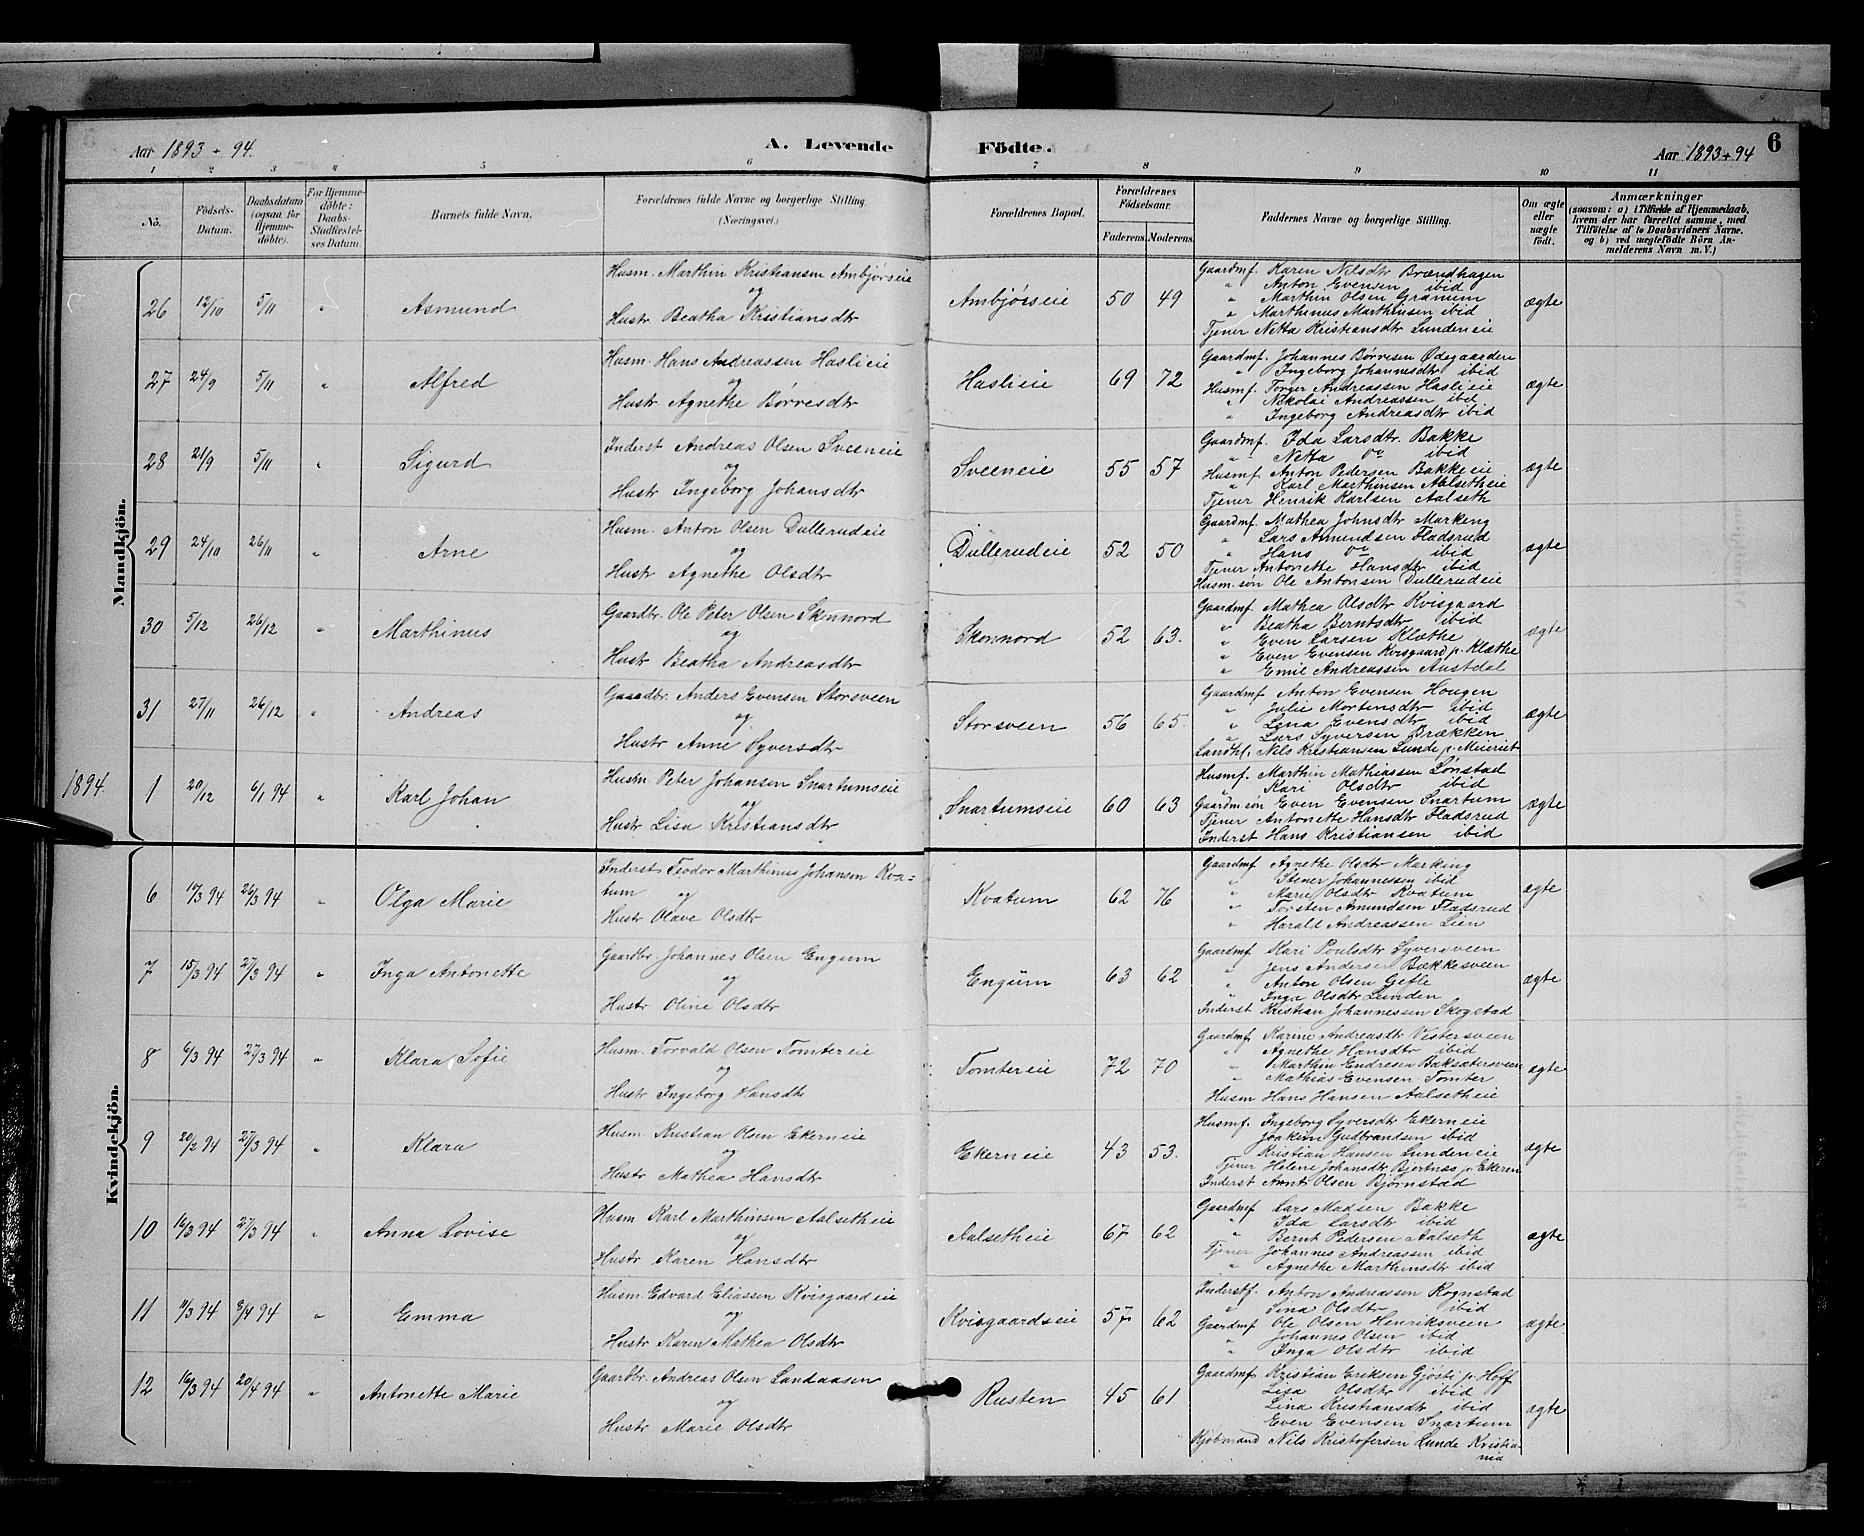 Aar 1893 + 94.
A. Levende Födte.
Aar 1893 + 94
6
1 2 3 4 5 6 7 8 9 10 11
No.
Födsels-Datum.
Daabsdatum (ogsaa for Hjemme-döbte).
For Hjemme-döbte: Daabs-Stadfæstel-ses Datum.
Barnets fulde Navn.
Forældrenes fulde Navne og borgerlige Stilling. (Næringsvei.)
Forældrenes Bopæl.
Forældrenes Födselsaar.
Faderens. Moderens.
Faddernes Navne og borgerlige Stilling.
Om ægte eller uægte födt.
Anmærkninger
(saasom: a) i Tilfælde af Hjemmedaab, hvem der har forrettet samme, med Tilföielse af to Daabsvidners Navne, og b) ved uægtefödte Börn An-melderens Navn m. V.)
Mandkjön.
26 12/10 5/11 " Asmund
Husm. Marthin Kristiansen Ambjörseie
og
Hustr Beatha Kristiansdtr
Ambjörseie 50 49
Gaardmf. Karen Nilsdtr Brændhagen
" Anton Evensen ibid
" Marthin Olsen Granum
" Marthinus Marthinsen ibid
Tjener Netta Kristiansdtr Lundeneie
ægte
27 24/9 5/11 " Alfred
Husm. Hans Andreassen Haslieie
og
Hustr Agnethe Børresdtr
Haslieie 69 72
Gaardmf. Johannes Børresen Ødegaarden
" Ingeborg Johannesdtr ibid
Husmf. Torger Andreassen Haslieie
" Nikolai Andreassen ibid
" Ingeborg Andreasdtr ibid
ægte
28 21/9 5/11 " Sigurd
Inderst Andreas Olsen Sveeneie
og
Hustr Ingeborg Johansdtr
Sveeneie 55 57
Gaardmf. Ida Larsdtr. Bakke
" Netta do ibid
Husmf. Anton Pedersen Bakkeie
" Karl Marthinsen Aalsetheie
Tjener Henrik Karlsen Aalseth
ægte
29 24/10 26/11 " Arne
Husm. Anton Olsen Dullerudeie
og
Hustr Agnethe Olsdtr
Dullerudeie 52 50
Gaardmf. Mathea Johnsdtr Marking
" Lars Amundsen Fladsrud
" Hans do ibid
Tjener Antonette Hansdtr ibid
Husm.søn Ole Antonsen Dullerudeie
ægte
30 5/12 26/12 " Marthinus
Gaardbr. Ole Peter Olsen Skonnord
og
Hustr Beatha Andreasdtr
Skonnord 52 63.
Gaardmf. Mathea Olsdtr Kvisgaard
" Beatha Berntsdtr ibid
" Even Larsen Klæthe
" Even Evensen Kvisgaard p. Klæthe
" Emil Andreassen Austdal
ægte
31 27/11 26/12 " Andreas
Gaardbr. Anders Evensen Storsveen
og
Hustr Anne Syversdtr
Storsveen 56 65.
Gaardmf Anton Evensen Hougen
" Julie Mortensdtr ibid
" Lena Evensdtr ibid
" Lars Syversen Brækken
Landhl. Nils Kristiansen Lunde p. Meieriet
ægte
1894.
1 20/12 6/1 94 " Karl Johan
Husm Peter Johansen Snartumseie
og
Hustr Lisa Kristiansdtr
Snartumseie 60 63
Husmf. Marthin Mathiassen Lønstad
" Kari Olsdtr ibid
Gaardm.søn Even Evensen Snartum
Tjener Antonette Hansdtr Fladsrud
Inderst Hans Kristiansen ibid
ægte
Kvindekjön.
6 10/3 94 26/3 94 " Olga Marie
Inderst Teodor Marthinus Johansen Kva=
tum og
Hustr Olave Olsdtr
Kvatum 62 76
Gaardmf Agnethe Olsdtr Marking
" Stener Johannessen ibid
" Marie Olsdtr Kvatum
" Torsten Amundsen Fladsrud
" Harald Andreassen Lien
ægte
7 15/3 94 27/3 94 " Inga Antonette
Gaardbr Johannes Olsen Engum
og
Hustr Oline Olsdtr
Engum 63 62
Gaardmf. Kari Poulsdtr Syversveen
" Jens Andersen Bækkesveen
" Anton Olsen Gefle
" Inga Olsdtr Lunden
Inderst Kristian Johannessen Skogstad
ægte
8 6/3 94 27/3 94 " Klara Sofie
Husm. Torvald Olsen Tomtereie
og
Hustr Ingeborg Hansdtr
Tomtereie 72 70
Gaardmf. Karine Andreasdtr Vestersveen
" Agnethe Hansdtr ibid
" Marthin Endresen Baksætersveen
" Mathias Evensen Tomter
Husm Hans Hansen Aalsetheie
ægte
9 20/2 94 27/3 94 " Klara
Husm Kristian Olsen Ekerneie
og
Hustr Mathea Hansdtr
Ekerneie 43 53.
Husmf. Ingeborg Syversdtr Ekerneie
" Joakim Gudbrandsen ibid
" Kristian Hansen Lundeneie
Tjener Helene Johansdtr Bjertnæs p. Ekeren
Inderst Arnt Olsen Bjørnstad
ægte
10 16/3 94 27/3 94 " Anna Lovise
Husm Karl Marthinsen Aalsetheie
og
Hustr Karen Hansdtr
Aalsetheie 67 62
Gaardmf Lars Madsen Bakke
" Ida Larsdtr ibid
" Bernt Pedersen Aalseth
Tjener Johannes Andreassen ibid
" Agnethe Marthinsdtr ibid
ægte
11 11/3 94 8/4 94 " Emma
Husm. Edvard Eliassen Kvisgaardeie
og
Hustr Karen Mathea Olsdtr
Kvisgaardseie 57 62
Inderstf. Anton Andreassen Rognstad
" Lina Olsdtr ibid
Gaardmf Ole Olsen Henriksveen
" Johannes Olsen ibid
" Inga Olsdtr ibid
ægte
12 16/3 94 20/4 94 " Antonette Marie
Gaardbr. Andreas Olsen Landaasen
og
Hustr Marie Olsdtr
Rusten 45 61
Gaardmf Kristian Eriksen Gjøsti p. Hoff
Lisa Olsdtr ibid
Lina Kristiansdtr ibid
Even Evensen Snartum
Kjøbmand Nils Kristofersen Lunde Kristia-
nia
ægte